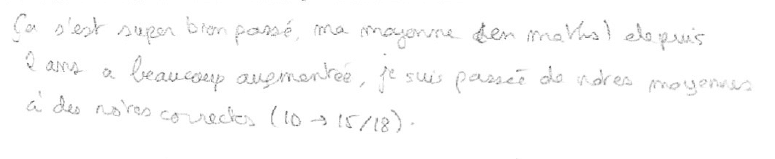 Ça s'est super bien passé, ma moyenne (en maths) depuis
2 ans a beaucoup augmentée, je suis passée de notes moyennes
à des notes correctes (10 → 15/18).